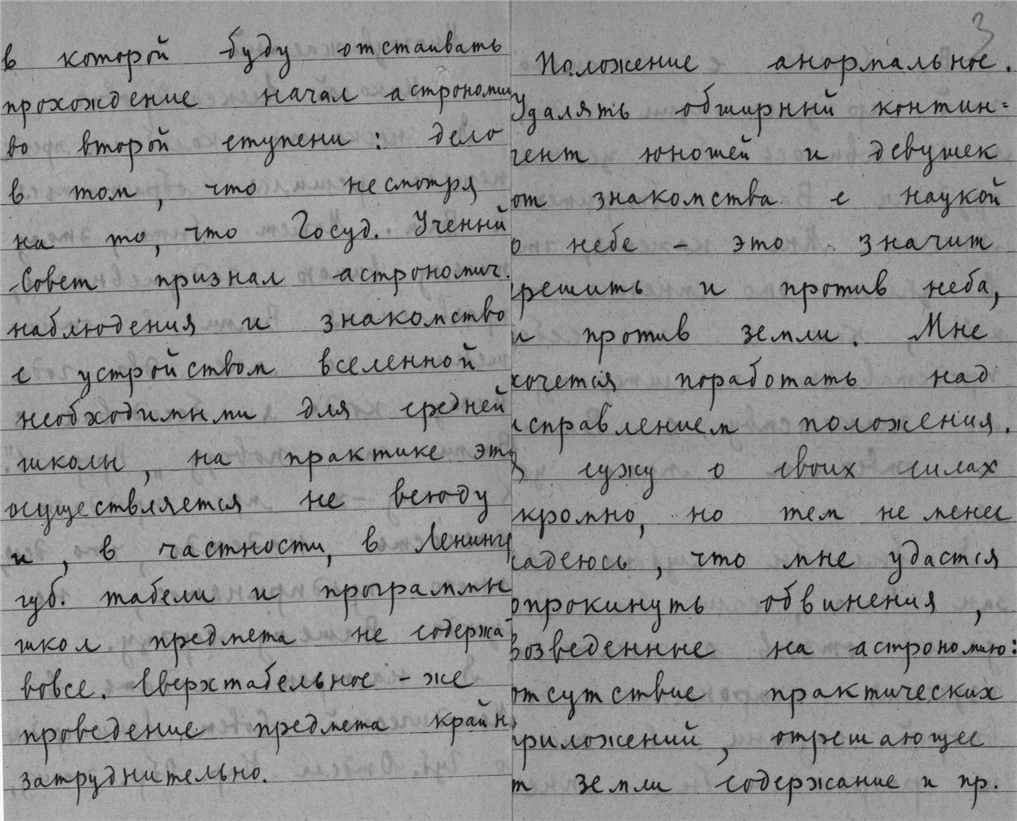 в которой буду отстаивать
прохождение начал астрономии
во второй ступени: дело
в том, что несмотря
на то, что Госуд. Ученый
Совет признал астрономич.
наблюдения и знакомство
с устройством вселенной
необходимыми для средней
школы, на практике это
осуществляется не всюду
и, в частности, в Ленингр
губ. табели и программы
школ предмета не содержа
вовсе. Сверхтабельное - же
проведение предмета крайн
затруднительно.
3
Положение анормальное.
Удалять обширный контин=
гент юношей и девушек
от знакомства с наукой
о небе - это значит
грешить и против неба,
и против земли. Мне
хочется поработать над
исправлением положения.
Я сужу о своих силах
скромно, но тем не менее
надеюсь, что мне удастся
опрокинуть обвинения,
возведенные на астрономию:
отсутствие практических
приложений, отрешающее
от земли содержание и пр.